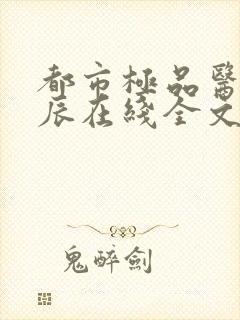 都市極品醫
辰在綫全文
鬼醉劍